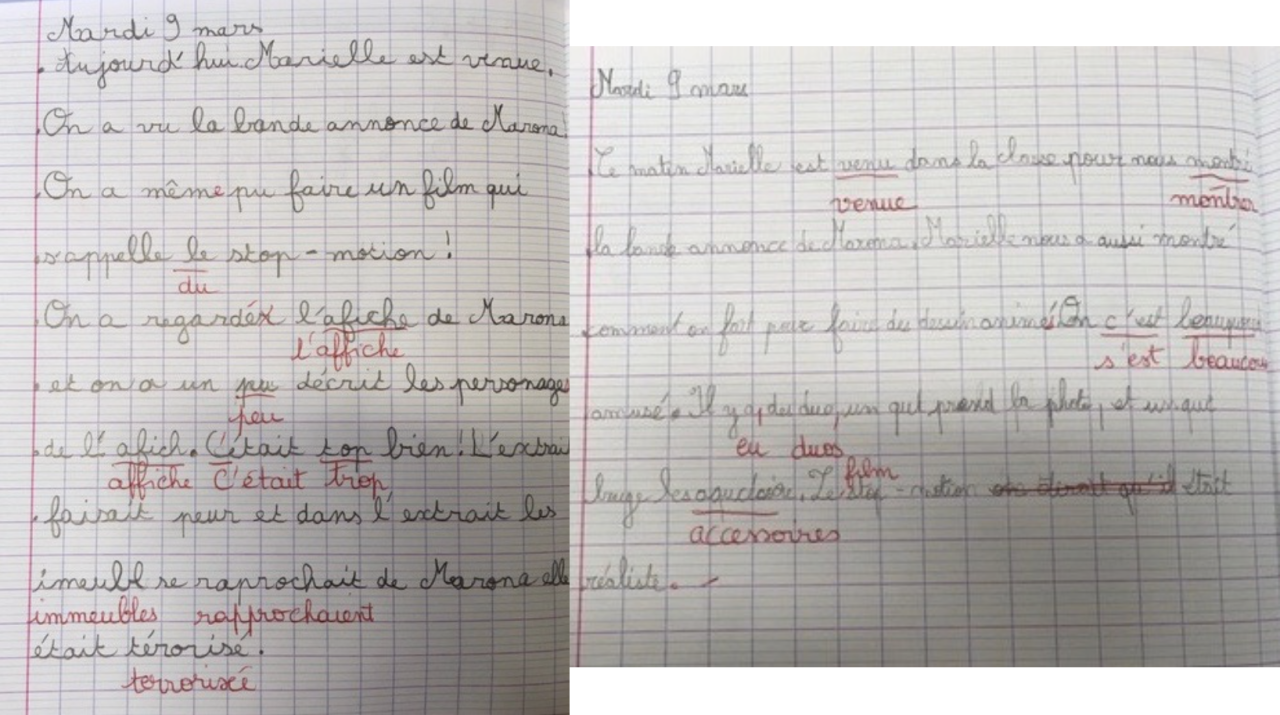 Mardi 9 mars
. Aujourd'hui Marielle est venue.
On a vu la bande annonce de Marona.
On a même pu faire un film qui
s'appelle le stop-motion !
du
On a regardéx l'afiche de Marona
l'affiche
. et on a un pu décrit les personages
peu
. de l'afich. C'était top bien ! L'extrai
affiche C'était trop
. faisait peur et dans l'extrait les
imeubl se raprochait de Marona elle
immeubles rapprochaient
était térorisé.
terrorisée
Mardi 9 mars
Ce matin Marielle est venu dans la classe pour nous montré
venue montrer
la bande annonce de Marona. Marielle nous a aussi montré
comment on fait pour faire des dessin animé. On c'est
s'est beaucoup
amusé. Il y a des duo, un qui prend la photo, et un qui
eu duos
film
bouge les. Le stop-motion était
accessoires
réaliste.